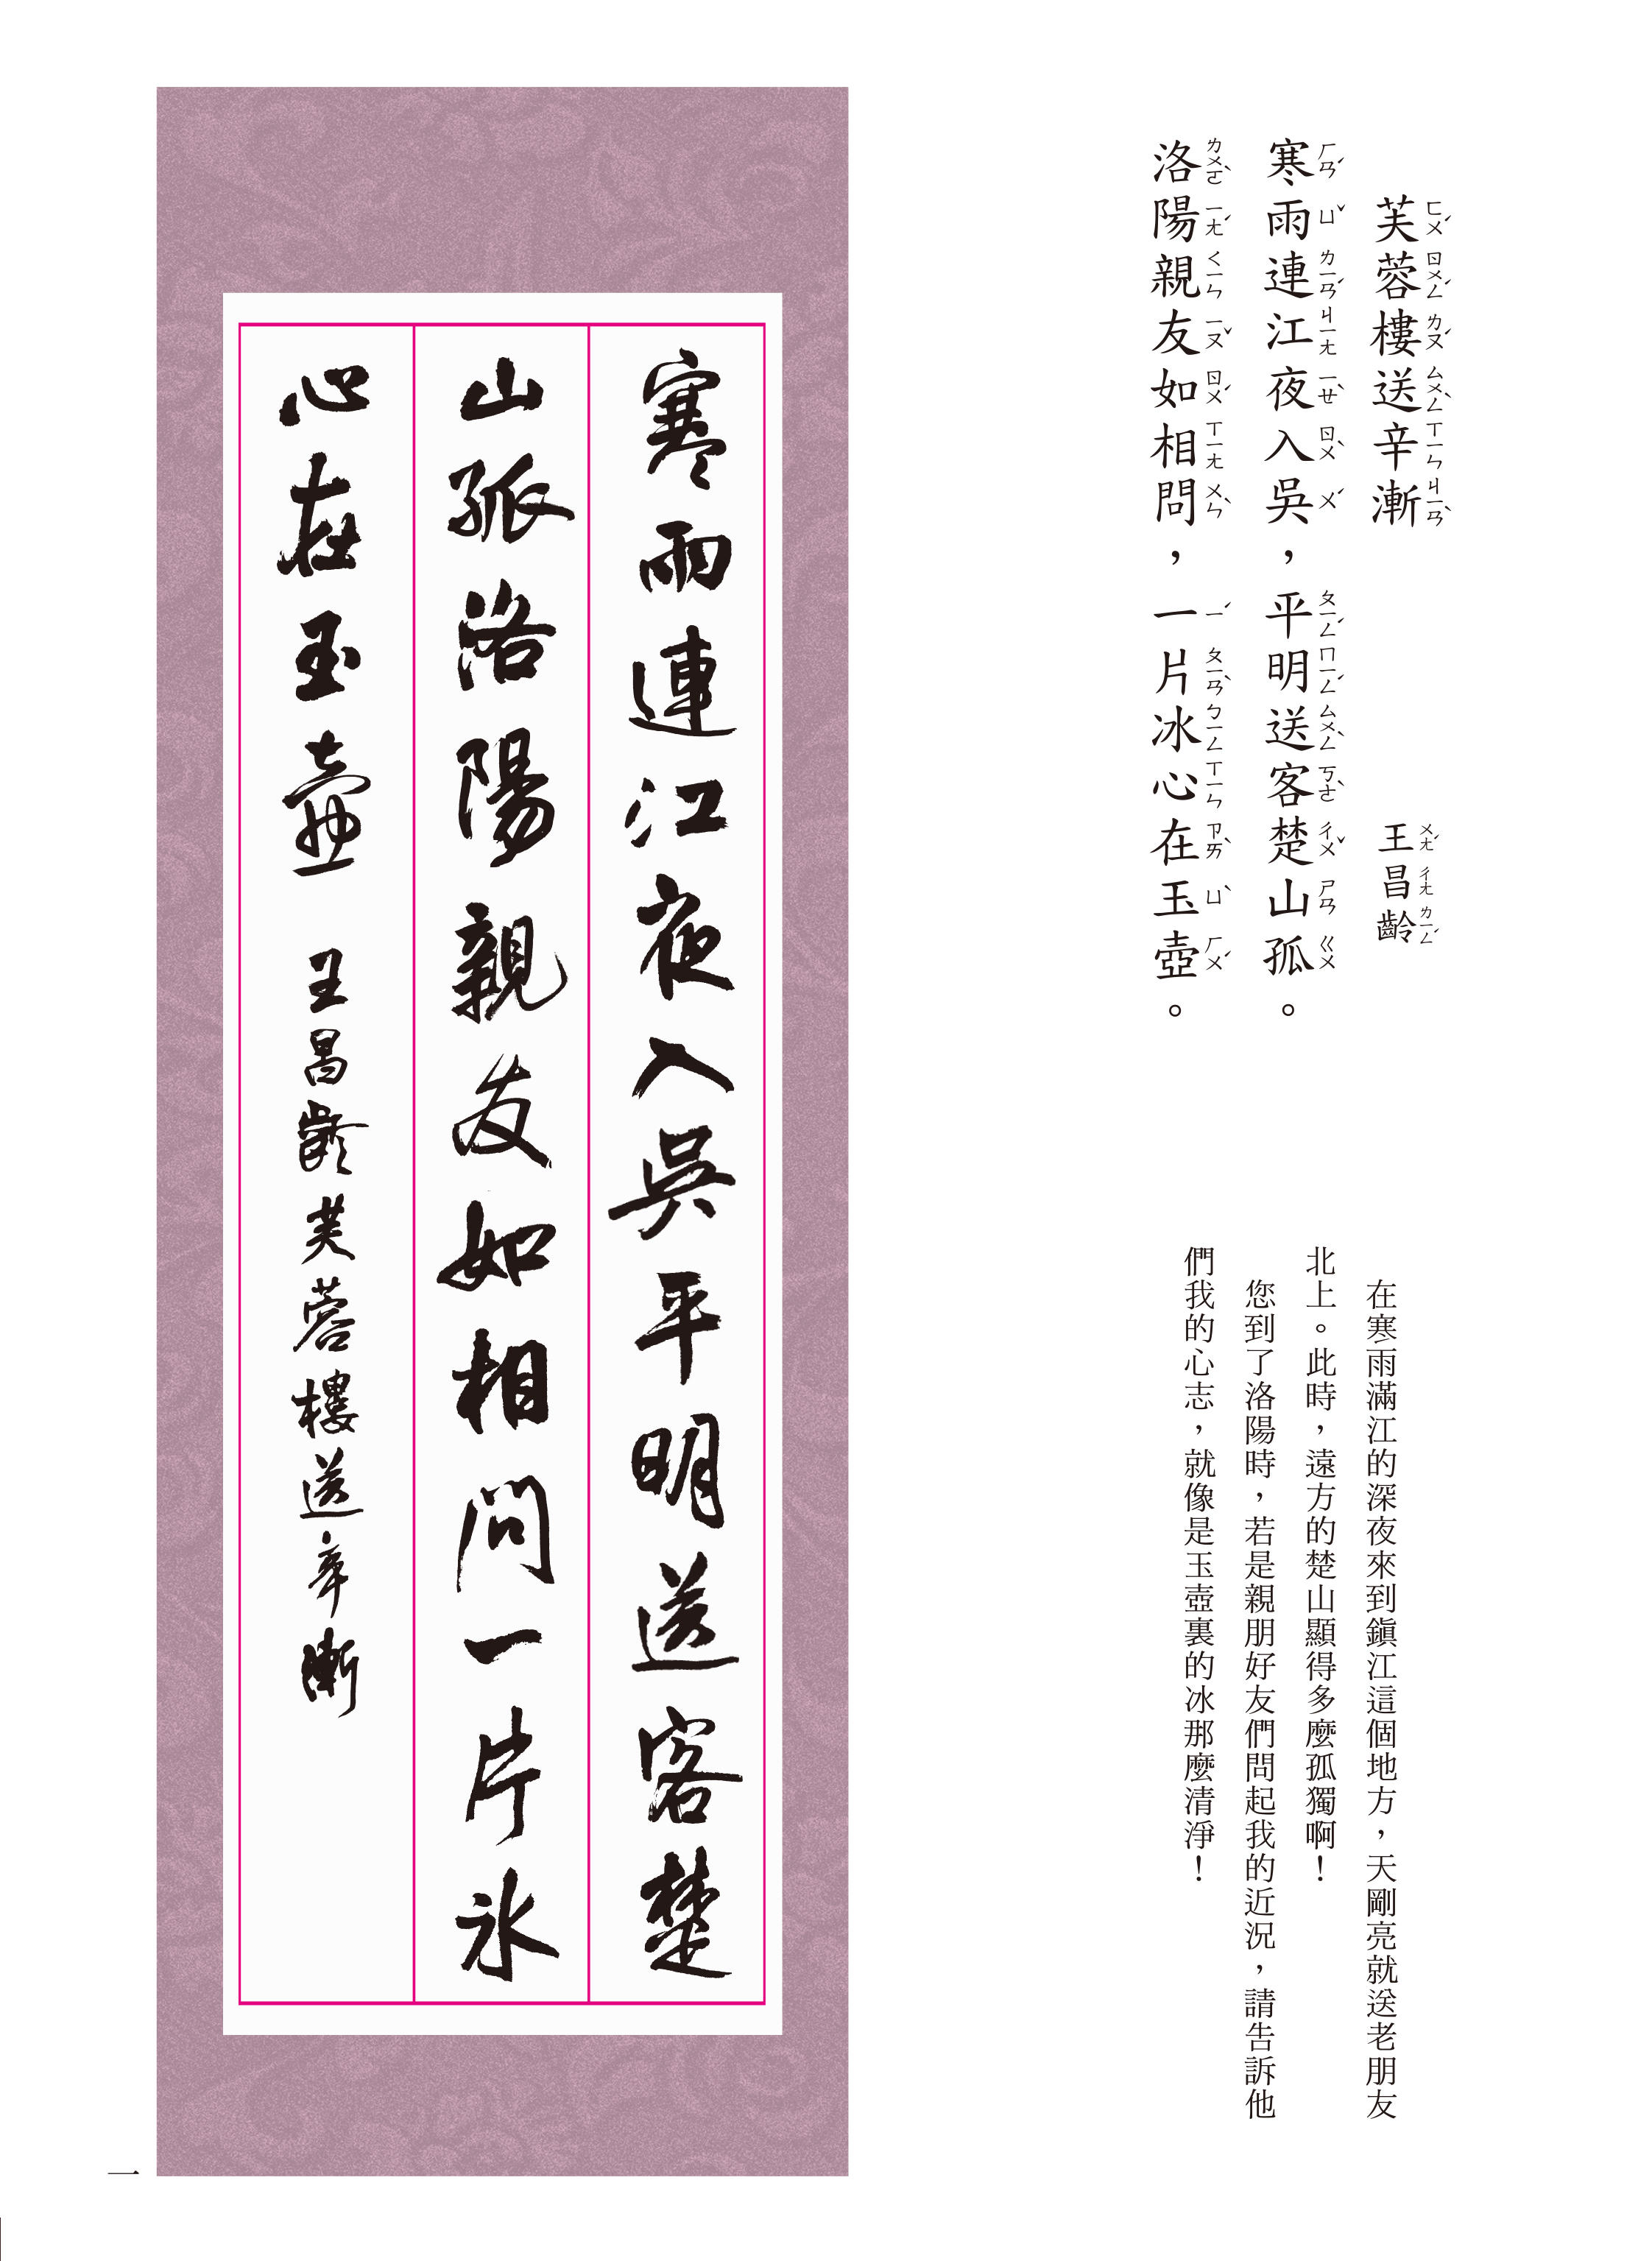 芙蓉樓送辛漸　王昌齡
ㄈㄨˊ ㄖㄨㄥˊ ㄌㄡˊ ㄙㄨㄥˋ ㄒㄧㄣ ㄐㄧㄢˋ　ㄨㄤˊ ㄔㄤ ㄌㄧㄥˊ
寒雨連江夜入吳，平明送客楚山孤。
ㄏㄢˊ ㄩˇ ㄌㄧㄢˊ ㄐㄧㄤ ㄧㄝˋ ㄖㄨˋ ㄨˊ ㄆㄧㄥˊ ㄇㄧㄥˊ ㄙㄨㄥˋ ㄎㄜˋ ㄔㄨˇ ㄕㄢ ㄍㄨ
洛陽親友如相問，一片冰心在玉壺。
ㄌㄨㄛˋ ㄧㄤˊ ㄑㄧㄣ ㄧㄡˇ ㄖㄨˊ ㄒㄧㄤ ㄨㄣˋ ㄧˊ ㄆㄧㄢˋ ㄅㄧㄥ ㄒㄧㄣ ㄗㄞˋ ㄩˋ ㄏㄨˊ
在寒雨滿江的深夜來到鎮江這個地方，天剛亮就送老朋友
北上。此時，遠方的楚山顯得多麼孤獨啊！
您到了洛陽時，若是親朋好友們問起我的近況，請告訴他
們我的心志，就像是玉壺裏的冰那麼清淨！
寒雨連江夜入吳平明送客楚
山孤洛陽親友如相問一片冰
心在玉壺　王昌齡芙蓉樓送辛漸
一